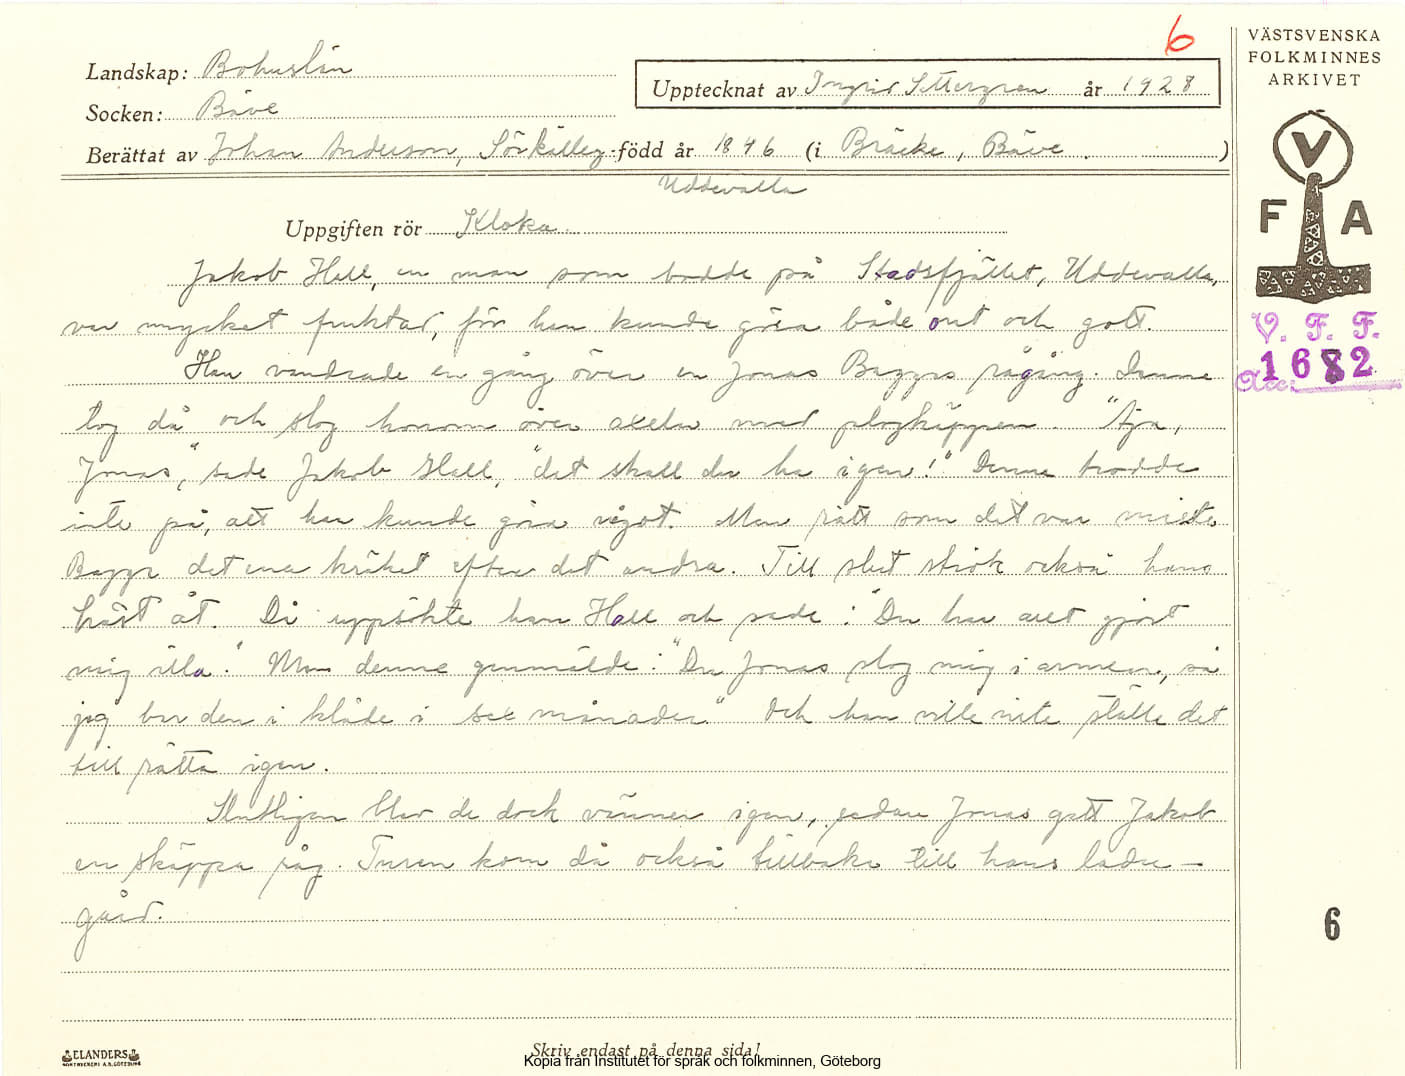 6
VÄSTSVENSKA
FOLKMINNES
ARKIVET
Landskap: Bohuslän
Upptecknat av Ingrid Settergren år 1928
Socken: Bäve
Berättat av Johan Anderson, Sörkälleg. född år 1846 (i Bräcke, Bäve.)
Uddevalla
Uppgiften rör Kloka.
V
F A
V. F. F.
Acc: 1682
Jakob Hall, en man som bodde på Stadsfjället, Uddevalla,
var mycket fruktad, för han kunde göra både ont och gott.
Han vandrade en gång över en Jonas Baggs rågång. Denne
tog då och slog honom över axeln med plogkäppen. "Aja,
Jonas," sade Jakob Hall, "det skall du ha igen!" Denne trodde
inte på, att han kunde göra något. Men rätt som det var miste
Bagge det ena kräket efter det andra. Till slut strök också hans
häst åt. Då uppsökte han Hall och sade: "Du har allt gjort
mig illa." Men denne genmälde: "Du Jonas slog mig i armen, så
jag bar den i kläde i sex månader." Och han ville inte ställa det
till rätta igen.
Slutligen blev de dock vänner igen, sedan Jonas gett Jakob
en skäppa råg. Turen kom då också tillbaka till hans ladu-
gård.
6
ELANDERS
Skriv endast på denna sida!
Kopia från Institutet för språk och folkminnen, Göteborg